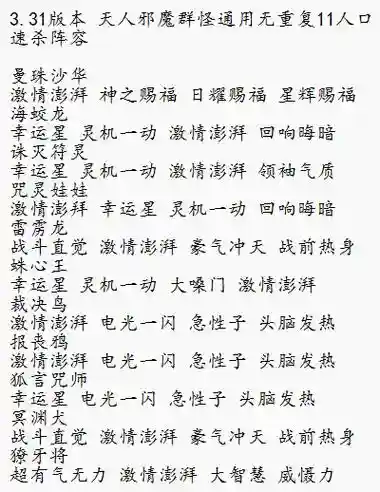 3.31版本 天人邪魔群怪通用无重复11人口
速杀阵容
曼珠沙华
激情澎湃 神之赐福 日耀赐福 星辉赐福
海蛟龙
幸运星 灵机一动 激情澎湃 回响晦暗
诛灭符灵
幸运星 灵机一动 激情澎湃 领袖气质
咒灵娃娃
激情澎拜 幸运星 灵机一动 回响晦暗
雷雳龙
战斗直觉 激情澎湃 豪气冲天 战前热身
蛛心王
幸运星 灵机一动 大嗓门 激情澎湃
裁决鸟
激情澎湃 电光一闪 急性子 头脑发热
报丧鸦
激情澎湃 电光一闪 急性子 头脑发热
狐言咒师
幸运星 电光一闪 急性子 头脑发热
冥渊犬
战斗直觉 激情澎湃 豪气冲天 战前热身
獠牙将
超有气无力 激情澎湃 大智慧 威慑力